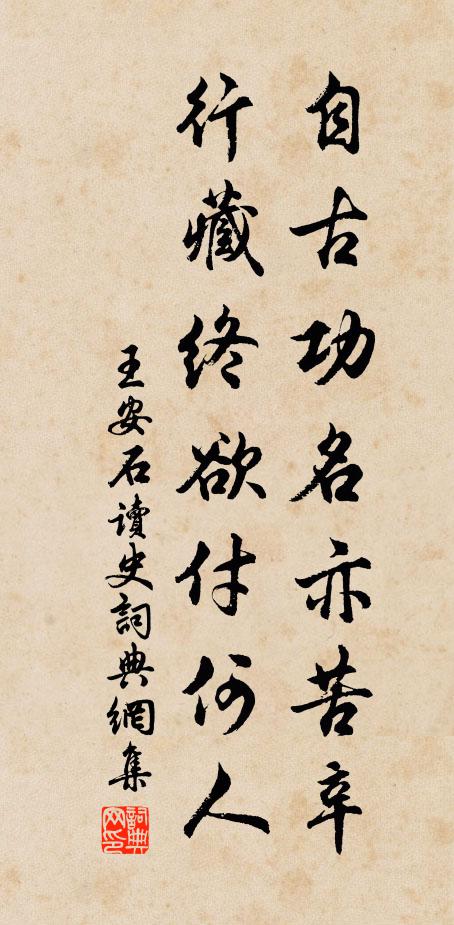 自古功名亦苦辛
行藏終欲付何人
王安石讀史詞典網集
詞典
网印